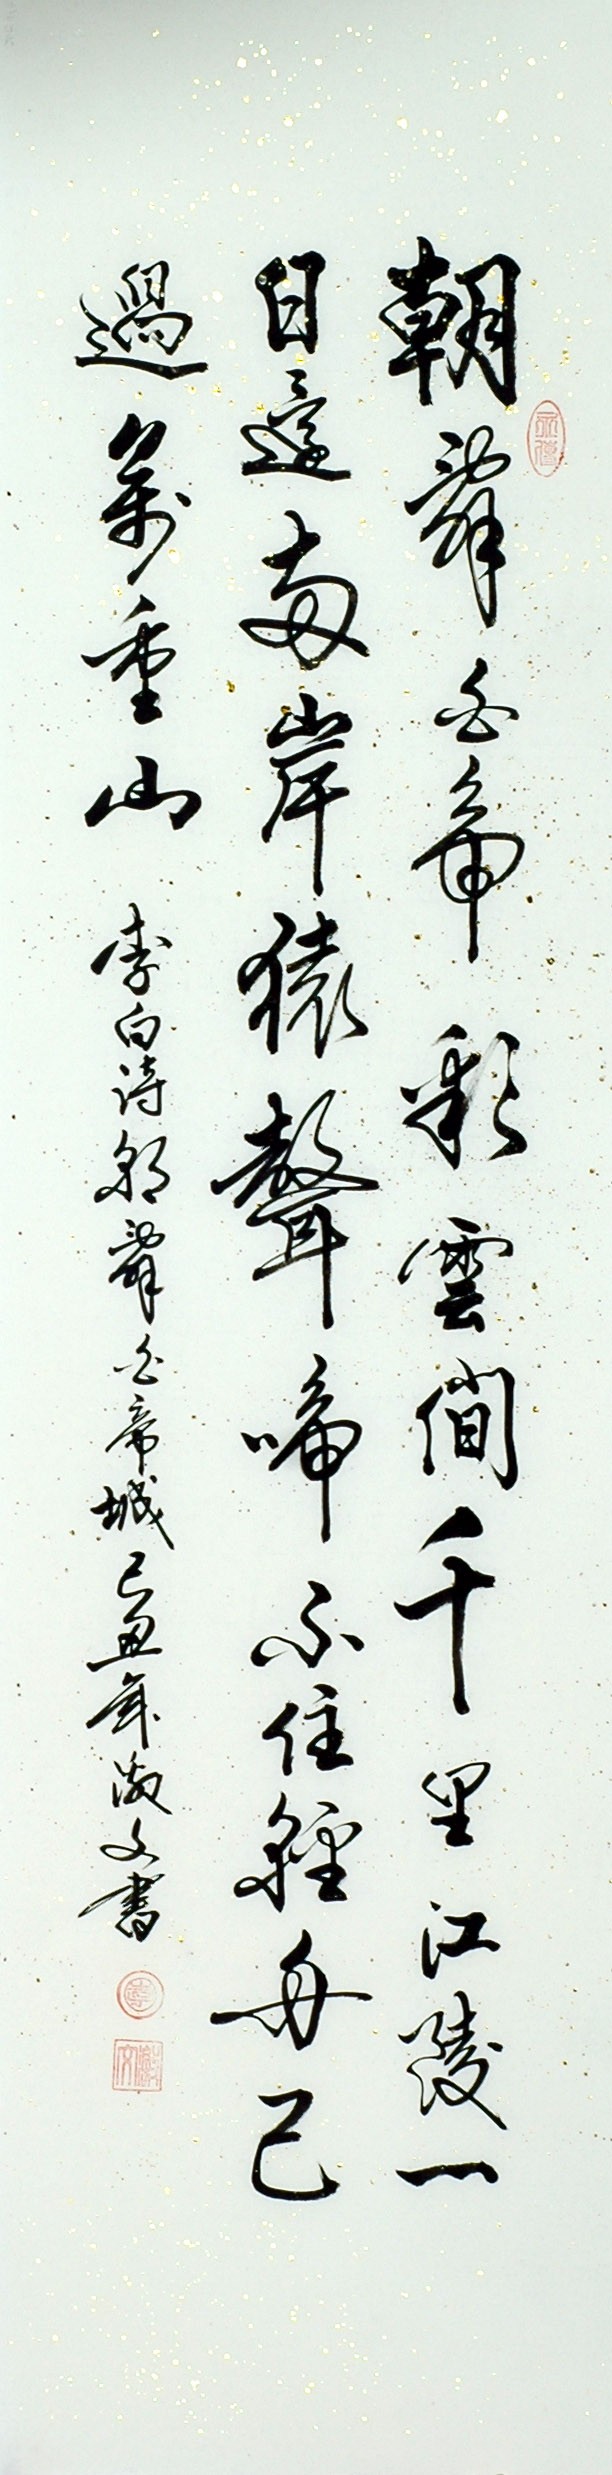 朝辭白帝彩雲間千里江陵一
日還兩岸猿聲啼不住輕舟已
過萬重山
李白詩朝辭白帝城己丑年淑文書